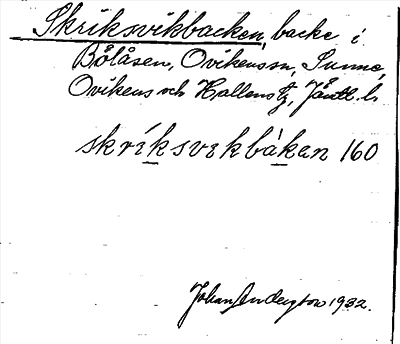 Skriksvikbacken, backe i
Bölåsen, Ovikens sn, Sunne,
Ovikens och Hallens tg, Jämtl. l.
skríksvikbàkan 160
Johan Anderzon 1932.